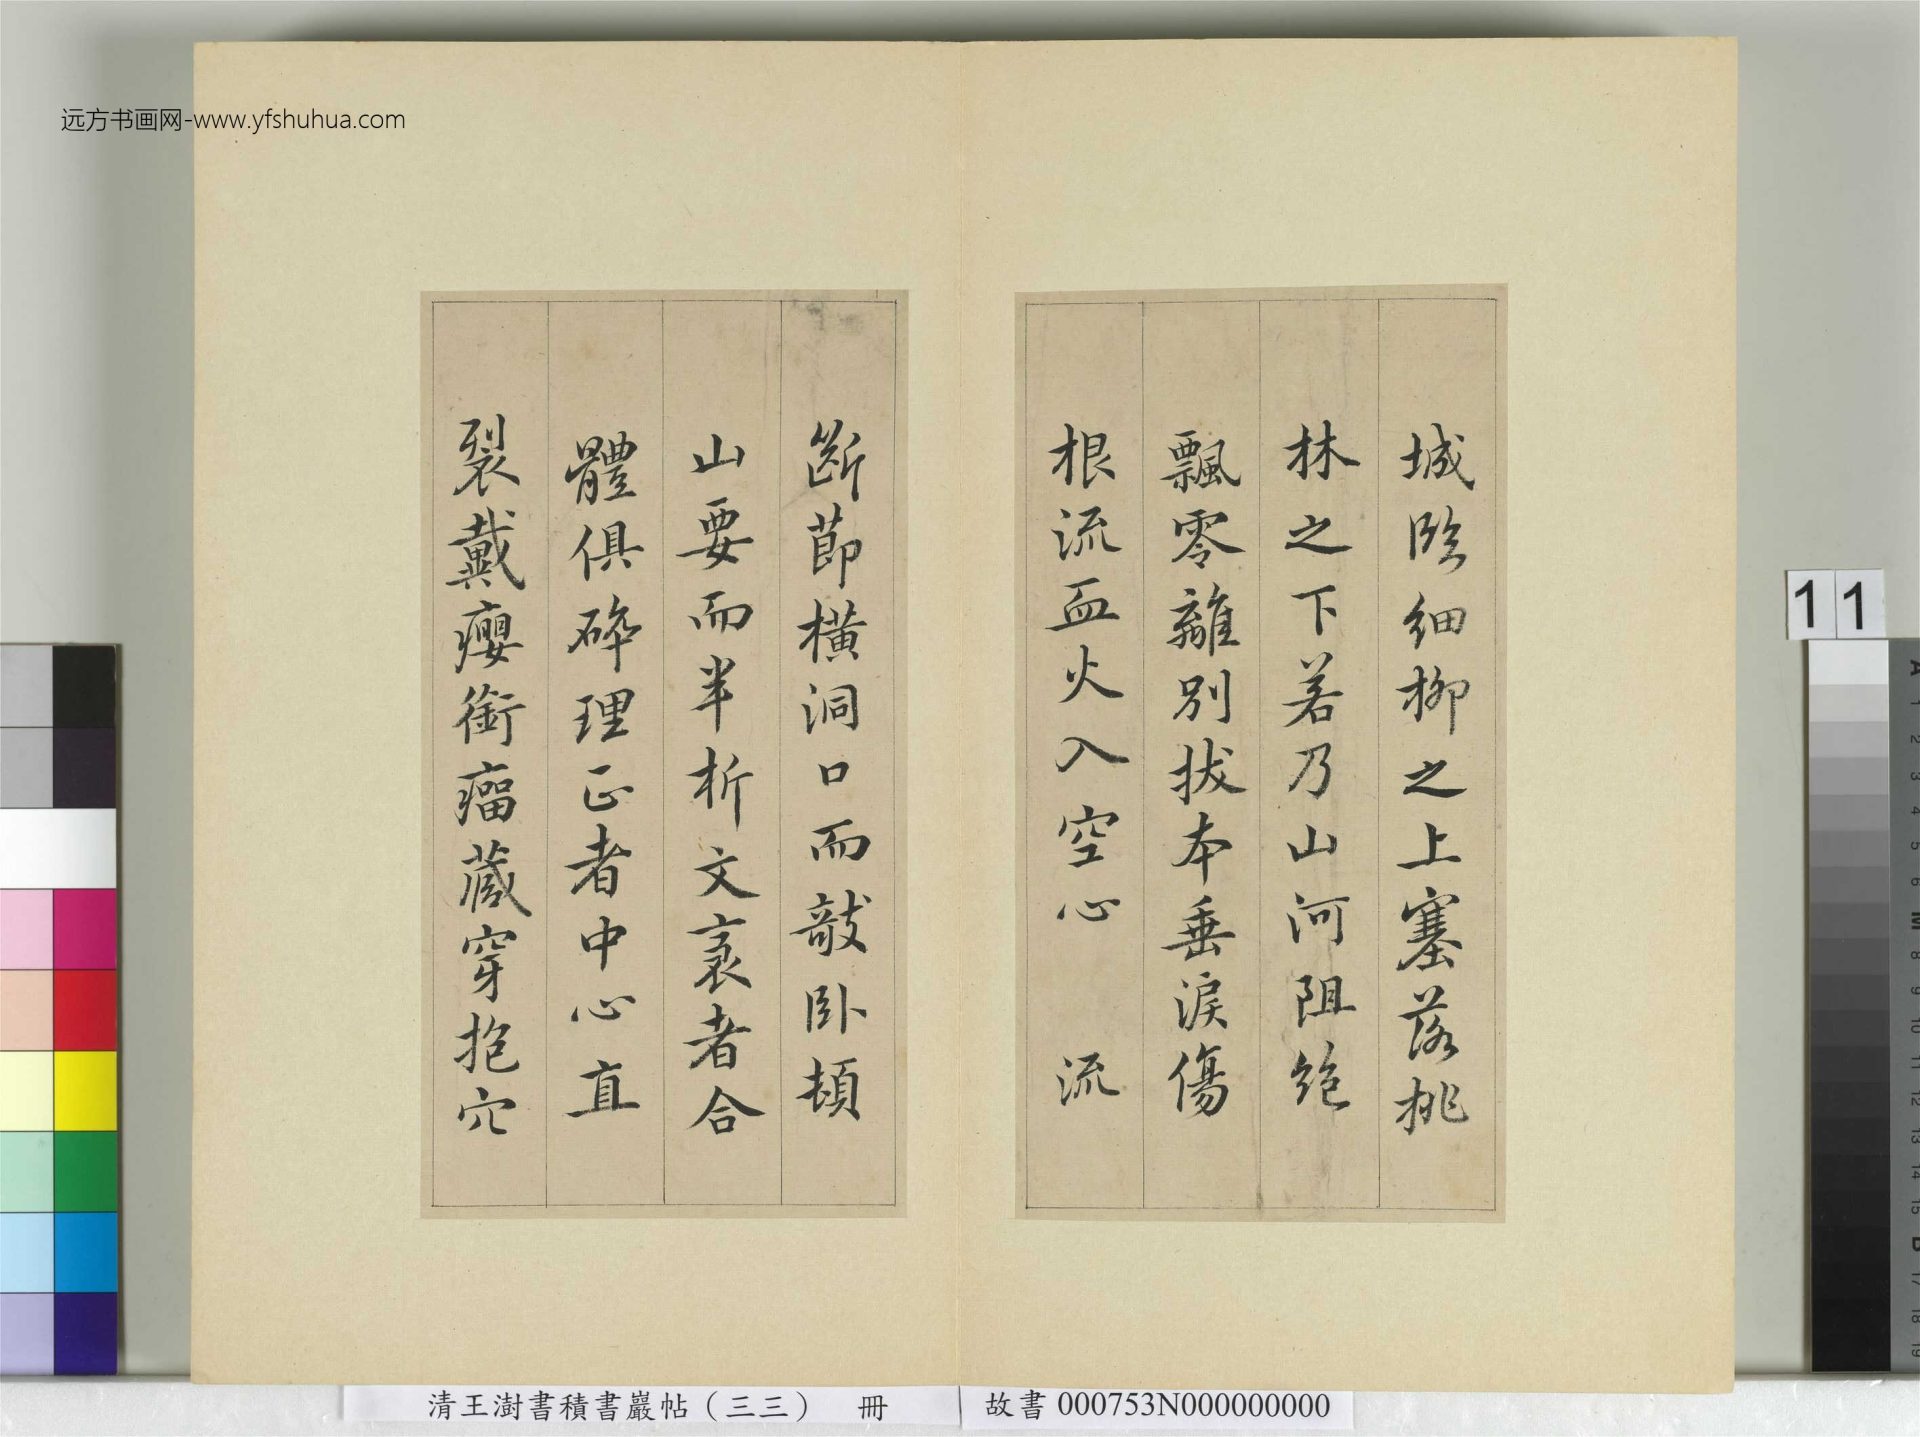 远方书画网-www.yfshuhua.com
城臨細柳之上塞落桃
林之下若乃山河阻絶
飄零離別拔本垂淚傷
根流血火入空心　流
斷莭橫洞口而敧卧頓
山要而半析文袤者合
體俱碎理正者中心直
裂戴癭銜瘤藏穿抱穴
11
清王澍書積書巖帖（三三）　冊
故書 000753N000000000